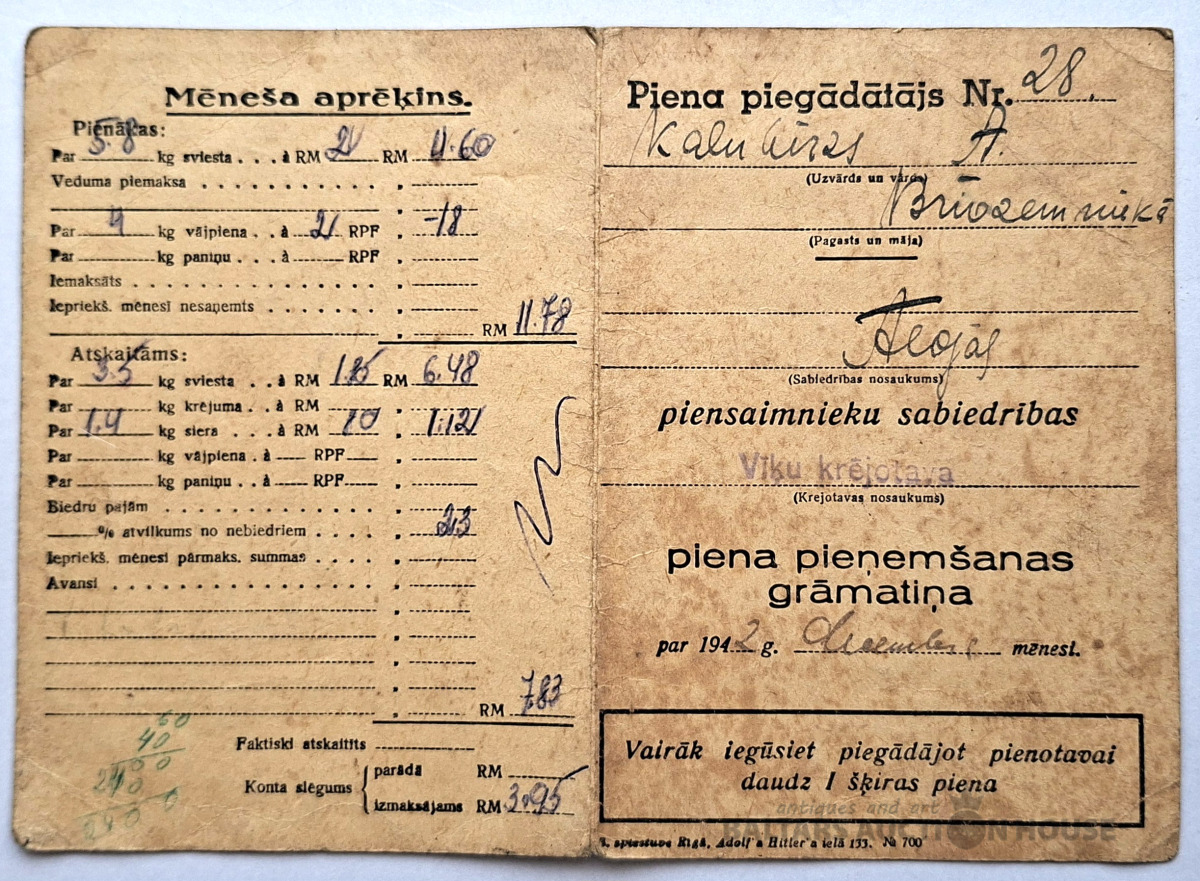 Mēneša aprēķins.
Pienākas:
Par 5.8 kg sviesta . . . à RM 2/ RM 11.60
Veduma piemaksa . . . . . . . . . . .
Par 9 kg vājpiena . . à 2/ RPF . -18
Par kg paniņu . . . à RPF .
Iemaksāts . . . . . . . . . . . . . .
Iepriekš. mēnesī nesaņemts . . . . . .
RM 11.78
Atskaitāms:
Par 3.5 kg sviesta . . à RM 1.85 RM 6.48
Par kg krējuma . . à RM
Par 1.4 kg siera . . . à RM 1.12
Par kg vājpiena . à RPF
Par kg paniņu . . à RPF
Biedru pajām . . . . . . . . . . . .
% atvilkums no nebiedriem . . . . 23
Iepriekš. mēnesī pārmaks. summas . . .
Avansi . . . . . . . . . . . . . . .
RM 7.83
Faktiski atskaitīts
Konta slēgums
parādā RM
izmaksājams RM 3.95
60
40
Piena piegādātājs Nr. 28.
Kalnbērzs A.
(Uzvārds un vārds)
Brīvzemniekā
(Pagasts un māja)
Alojas
(Sabiedrības nosaukums)
piensaimnieku sabiedrības
Vīķu krējotava
(Krejotavas nosaukums)
piena pieņemšanas
grāmatiņa
par 1942 g. decembra mēnesi.
Vairāk iegūsiet piegādājot pienotavai
daudz I šķiras piena
antiques and art
BALTARS AUCTION HOUSE
spiestuve Rīgā, Adolf'a Hitler'a ielā 133. № 700